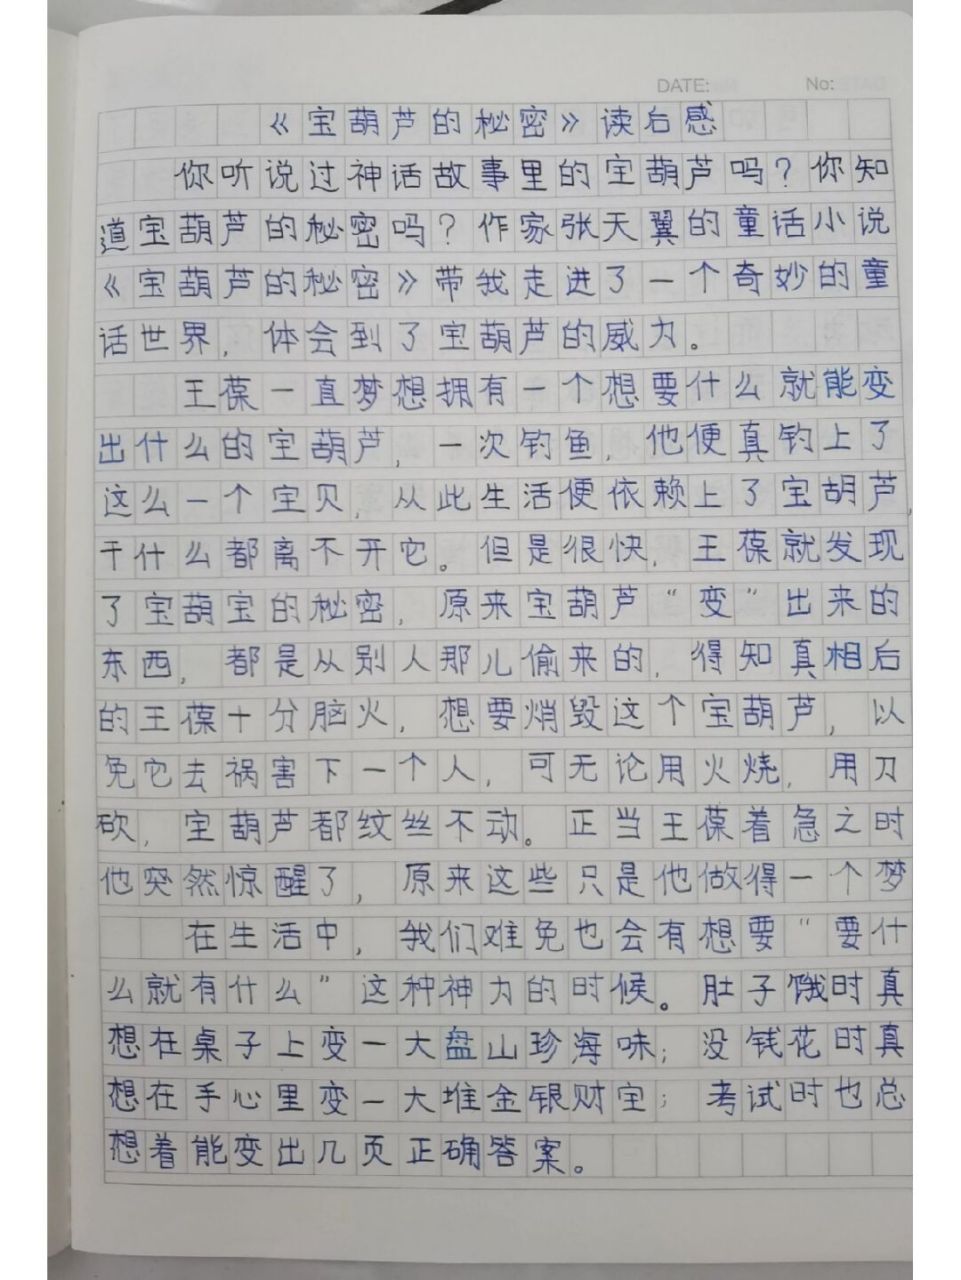 DATE: No:
《宝葫芦的秘密》读后感
你听说过神话故事里的宝葫芦吗？你知
道宝葫芦的秘密吗？作家张天翼的童话小说
《宝葫芦的秘密》带我走进了一个奇妙的童
话世界，体会到了宝葫芦的威力。
王葆一直梦想拥有一个想要什么就能变
出什么的宝葫芦，一次钓鱼，他便真钓上了
这么一个宝贝，从此生活便依赖上了宝胡芦，
干什么都离不开它。但是很快，王葆就发现
了宝葫宝的秘密，原来宝葫芦“变”出来的
东西，都是从别人那儿偷来的，得知真相后
的王葆十分脑火，想要焇毁这个宝葫芦，以
免它去祸害下一个人，可无论用火烧，用刀
砍，宝葫芦都纹丝不动。正当王葆着急之时
他突然惊醒了，原来这些只是他做得一个梦
在生活中，我们难免也会有想要“要什
么就有什么”这种神力的时候。肚子饿时真
想在桌子上变一大盘山珍海味；没钱花时真
想在手心里变一大堆金银财宝；考试时也总
想着能变出几页正确答案。